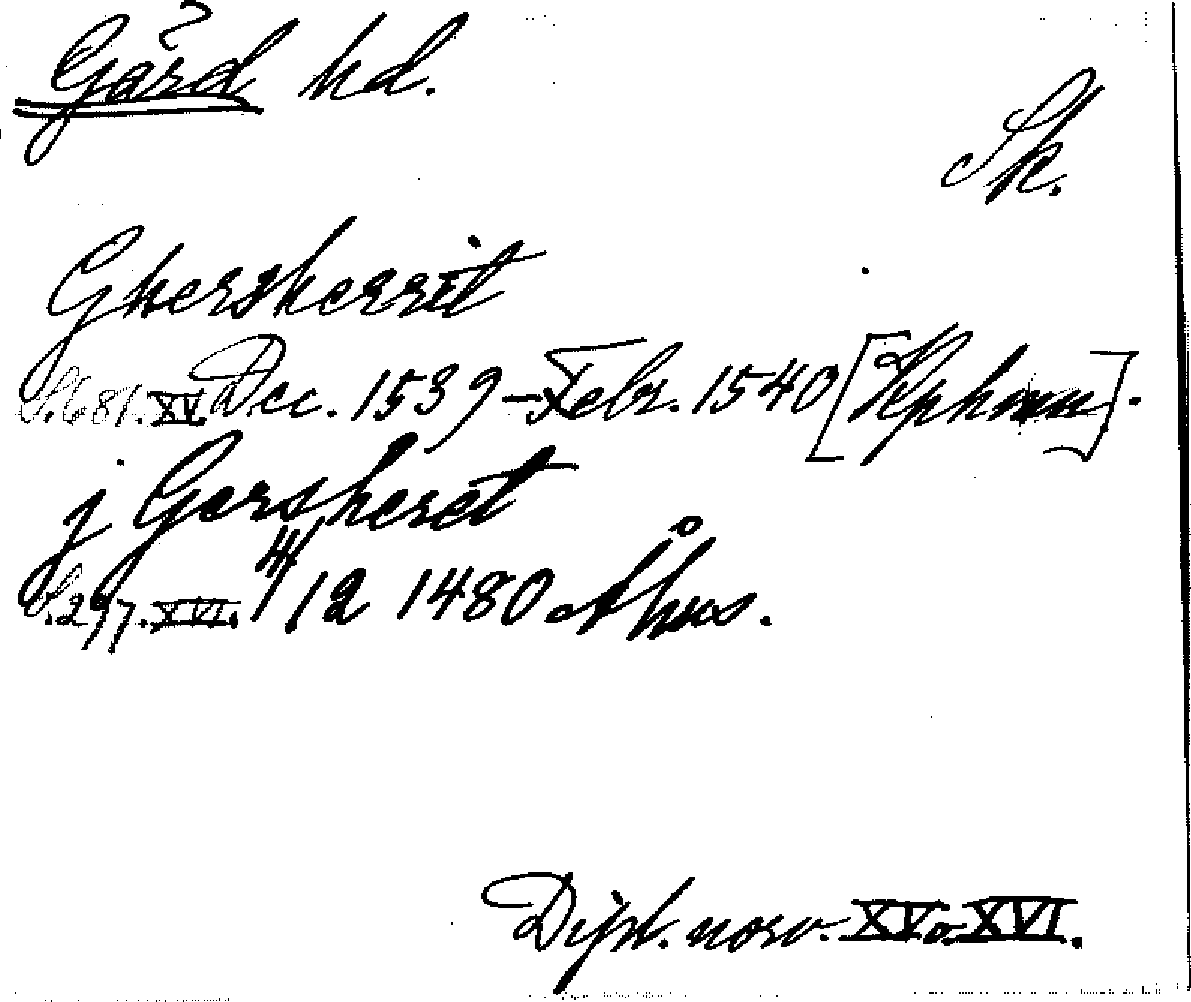 Gärd hd.
Sk.
Ghersherrit
S. 681. XV. Dec. 1539 – Febr. 1540 [Kphmn].
j Gersheret
S. 297. XVI. 4/12 1480 Åhus.
Dipl. norv. XV o. XVI.